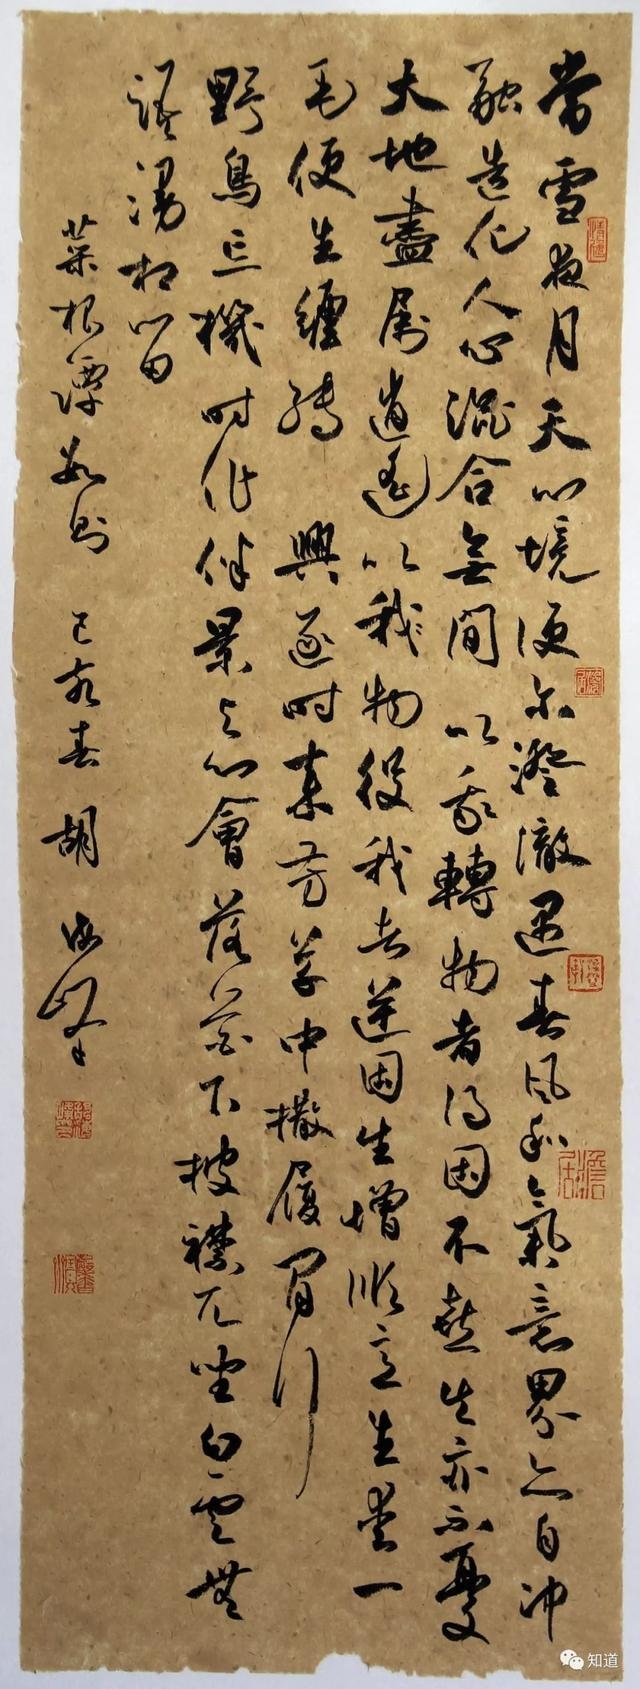 當雪夜月天心境便爾澄澈遇春風和氣意界亦自沖
融造化人心混合無間 以我轉物者得固不喜失亦不憂
大地盡屬逍遙以我物役我者逆固生增順亦生愛一
毛便生纏縛 興逐時來芳草中撒履閒行
野鳥忘機時作伴景與心會落花下披襟兀坐白雲無
語漫相留
菜根譚數則 己亥春 胡
知道